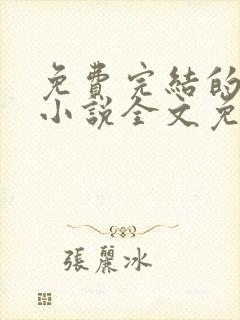 免費完結的
小說全文免
張麗冰